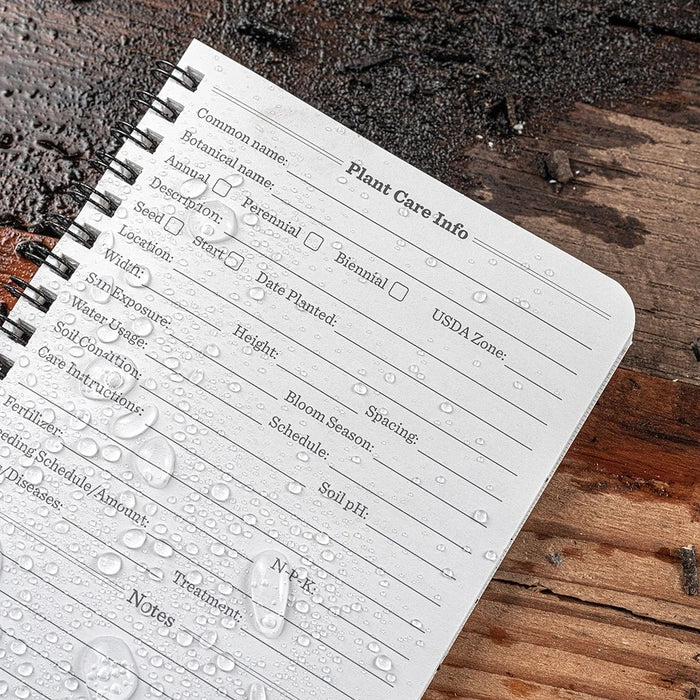 Plant Care Info
Common name:
Botanical name:
Annual Perennial Biennial USDA Zone:
Description:
Seed Start Date Planted:
Location:
Width: Height: Spacing:
Sun Exposure: Bloom Season:
Water Usage: Schedule:
Soil Condition: Soil pH:
Care Instructions:
Fertilizer: N-P-K:
eeding Schedule/Amount:
/Diseases: Treatment:
Notes